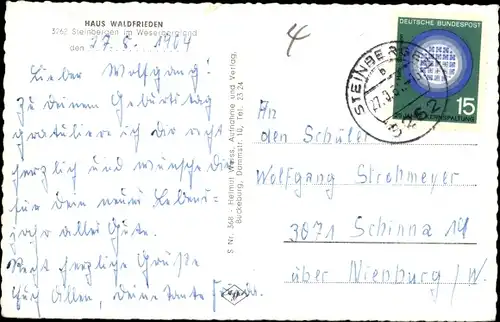 HAUS WALDFRIEDEN
3262 Steinbergen im Weserbergland
den 27.8.1964
Lieber Wolfgang!
Zu deinem Geburtstag
gratuliere ich dir recht
herzlich und wünsche dir
für dein neues Lebens-
jahr alles Gute.
Recht herzliche Grüße
Euch Allen, deine Tante
S Nr. 368 - Helmut Weiss, Aufnahme und Verlag,
Bückeburg, Dammstr. 10, Tel. 23 24
4
STEINBERGEN
3262
DEUTSCHE BUNDESPOST
15
KERNSPALTUNG
An
den Schüler
Wolfgang Strohmeyer
3071 Schinna 14
über Nienburg/W.